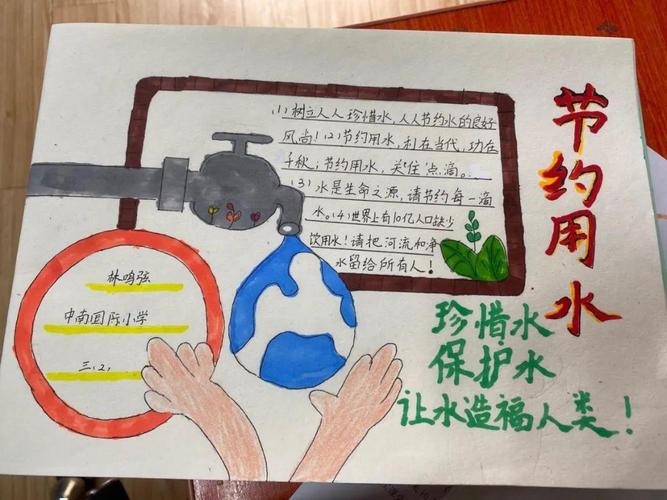 节约用水
(1) 树立人人珍惜水,人人节约水的良好
风尚!(2) 节约用水,利在当代,功在
千秋;节约用水,关“住”点滴。
(3) 水是生命之源,请节约每一滴
水。(4) 世界上有10亿人口缺少
饮用水!请把河流和净
水留给所有人!
林鸣弦
中南国际小学
三.2.
珍惜水
保护水
让水造福人类!